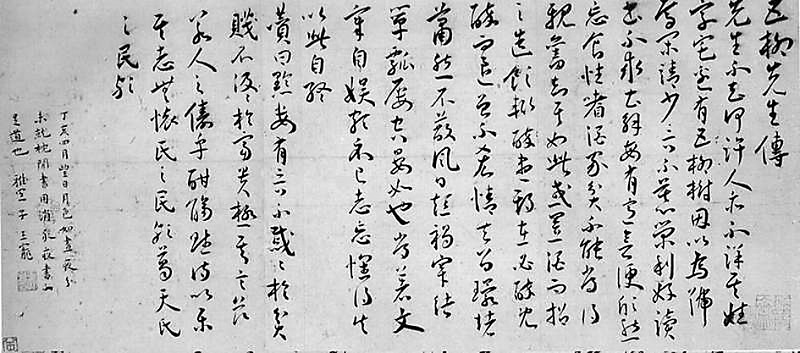 五柳先生傳
先生不知何許人亦不詳其姓
字宅邊有五柳樹因以為號
焉閑靖少言不慕榮利好讀
書不求甚解每有會意便欣然
忘食性嗜酒家貧不能常得
親舊知其如此或置酒而招
之造飲輒醉期在必醉既
醉而退曾不吝情去留環堵
蕭然不蔽風日短褐穿結
簞瓢屢空晏如也常著文
章自娛頗示己志忘懷得失
以此自終
贊曰黔婁有言不戚戚於貧
賤不汲汲於富貴極其言茲
若人之儔乎酣觴賦詩以樂
其志無懷氏之民歟葛天氏
之民歟
丁亥四月望日月色如畫夜分
未就枕閒書用消
道也 雅宜子王寵